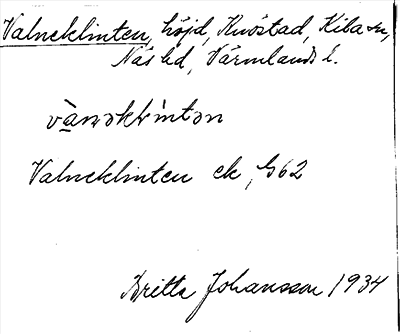 Valneklinten, höjd, Knöstad, Kila sn,
Näs hd, Värmlands l.
Valneklinten ek, G62
Britta Johansson 1934